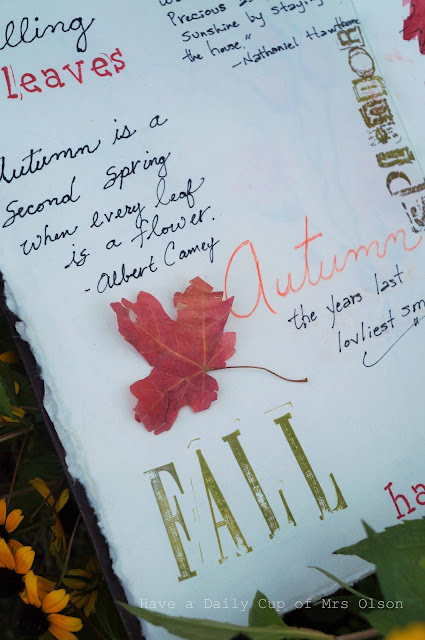 lling
leaves
Precious
sunshine by staying
the house."
-Nathaniel Hawthorne
SPLENDOR
Autumn is a
Second Spring
when every leaf
is a flower.
-Albert Camey
Autumn
the years last
lovliest sm
FALL
ha
Have a Daily Cup of Mrs Olson